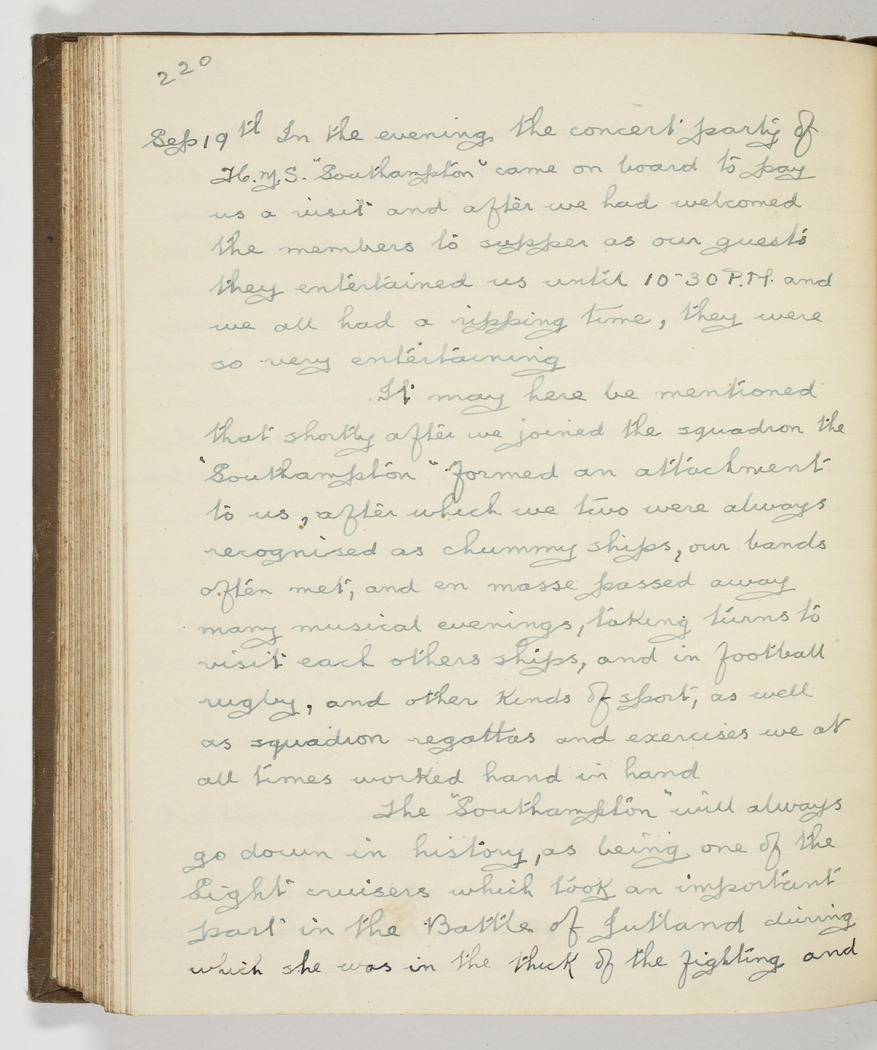 220
Sep 19th In the evening the concert party of
H.M.S. "Southampton" came on board to pay
us a visit and after we had welcomed
the members to supper as our guests
they entertained us until 10-30 P.M. and
we all had a ripping time, they were
so very entertaining
It may here be mentioned
that shortly after we joined the squadron the
"Southampton" formed an attachment
to us, after which we two were always
recognised as chummy ships, our bands
often met, and en masse passed away
many musical evenings, taking turns to
visit each others ships, and in football
rugby, and other kinds of sport, as well
as squadron regattas and exercises we at
all times worked hand in hand
The "Southampton" will always
go down in history, as being one of the
Light cruisers which took an important
part in the Battle of Jutland during
which she was in the thick of the fighting and